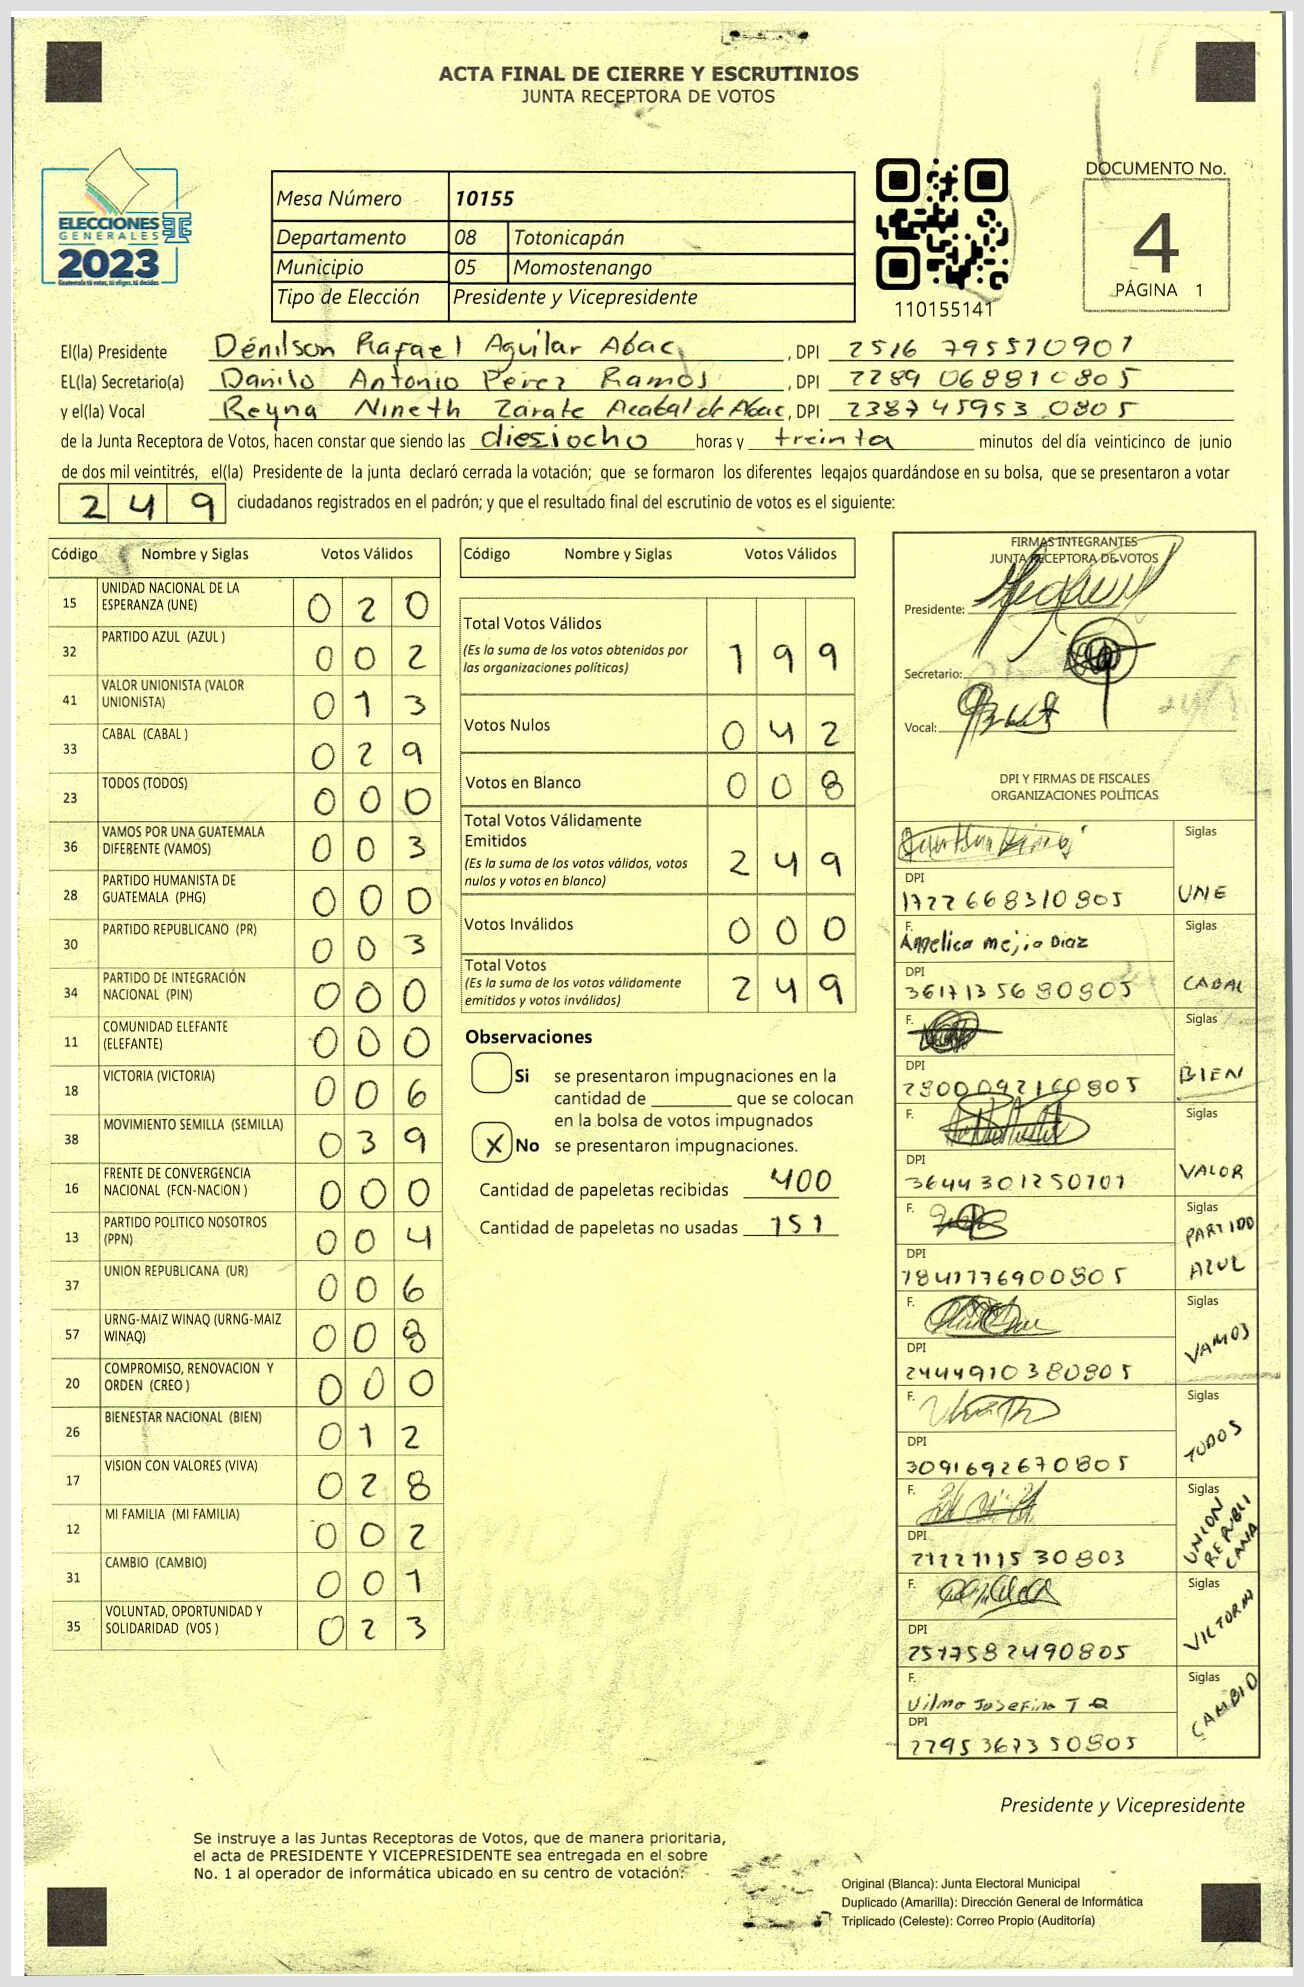 ACTA FINAL DE CIERRE Y ESCRUTINIOS
JUNTA RECEPTORA DE VOTOS
ELECCIONES
GENERALES
2023
Guatemala tú votas, tú eliges, tú decides
TSE
Mesa Número 10155
Departamento 08 Totonicapán
Municipio 05 Momostenango
Tipo de Elección Presidente y Vicepresidente
110155141
DOCUMENTO No.
4
PÁGINA 1
El(la) Presidente Dénilson Rafael Aguilar Abac, DPI 2516 795510901
EL(la) Secretario(a) Danilo Antonio Pérez Ramos, DPI 2289 068810805
y el(la) Vocal Reyna Nineth Zarate Acabal de Abac, DPI 2387459530805
de la Junta Receptora de Votos, hacen constar que siendo las diesiocho horas y treinta minutos del día veinticinco de junio
de dos mil veintitrés, el(la) Presidente de la junta declaró cerrada la votación; que se formaron los diferentes legajos guardándose en su bolsa, que se presentaron a votar
249 ciudadanos registrados en el padrón; y que el resultado final del escrutinio de votos es el siguiente:
Código Nombre y Siglas Votos Válidos
15 UNIDAD NACIONAL DE LA ESPERANZA (UNE) 020
32 PARTIDO AZUL (AZUL ) 002
41 VALOR UNIONISTA (VALOR UNIONISTA) 013
33 CABAL (CABAL ) 029
23 TODOS (TODOS) 000
36 VAMOS POR UNA GUATEMALA DIFERENTE (VAMOS) 003
28 PARTIDO HUMANISTA DE GUATEMALA (PHG) 000
30 PARTIDO REPUBLICANO (PR) 003
34 PARTIDO DE INTEGRACIÓN NACIONAL (PIN) 000
11 COMUNIDAD ELEFANTE (ELEFANTE) 000
18 VICTORIA (VICTORIA) 006
38 MOVIMIENTO SEMILLA (SEMILLA) 039
16 FRENTE DE CONVERGENCIA NACIONAL (FCN-NACION ) 000
13 PARTIDO POLITICO NOSOTROS (PPN) 004
37 UNION REPUBLICANA (UR) 006
57 URNG-MAIZ WINAQ (URNG-MAIZ WINAQ) 008
20 COMPROMISO, RENOVACION Y ORDEN (CREO ) 000
26 BIENESTAR NACIONAL (BIEN) 012
17 VISION CON VALORES (VIVA) 028
12 MI FAMILIA (MI FAMILIA) 002
31 CAMBIO (CAMBIO) 001
35 VOLUNTAD, OPORTUNIDAD Y SOLIDARIDAD (VOS ) 023
Código Nombre y Siglas Votos Válidos
Total Votos Válidos
(Es la suma de los votos obtenidos por
las organizaciones políticas) 199
Votos Nulos 042
Votos en Blanco 008
Total Votos Válidamente
Emitidos
(Es la suma de los votos válidos, votos
nulos y votos en blanco) 249
Votos Inválidos 000
Total Votos
(Es la suma de los votos válidamente
emitidos y votos inválidos) 249
Observaciones
Si se presentaron impugnaciones en la
cantidad de ________ que se colocan
en la bolsa de votos impugnados
X No se presentaron impugnaciones.
Cantidad de papeletas recibidas 400
Cantidad de papeletas no usadas 151
FIRMAS INTEGRANTES
JUNTA RECEPTORA DE VOTOS
Presidente:
Secretario:
Vocal:
DPI Y FIRMAS DE FISCALES
ORGANIZACIONES POLÍTICAS
Siglas
DPI
1722668310805 UNE
F. Angelica mejia Diaz Siglas
DPI
3617135680805 CABAL
F. Siglas
DPI
2800092160805 BIEN
F. Siglas
DPI
3644301250101 VALOR
F. Siglas
PARTIDO
DPI AZUL
1841776900805
F. Siglas
DPI
2444910380805 VAMOS
F. Siglas
DPI
3091692670805 TODOS
F. Siglas
DPI UNION REPUBLICANA
2122111530803
F. Siglas
DPI
2517582490805 VICTORIA
F. Siglas
Vilma Josefina T Q
DPI
2295367350805 CAMBIO
Presidente y Vicepresidente
Se instruye a las Juntas Receptoras de Votos, que de manera prioritaria,
el acta de PRESIDENTE Y VICEPRESIDENTE sea entregada en el sobre
No. 1 al operador de informática ubicado en su centro de votación.
Original (Blanca): Junta Electoral Municipal
Duplicado (Amarilla): Dirección General de Informática
Triplicado (Celeste): Correo Propio (Auditoría)